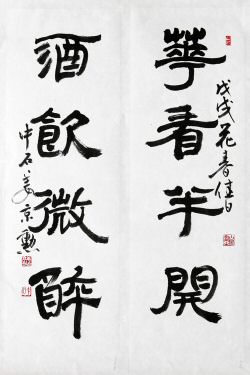 華看半開
戊戌花春佳日
酒飲微醉
中石姜京勳